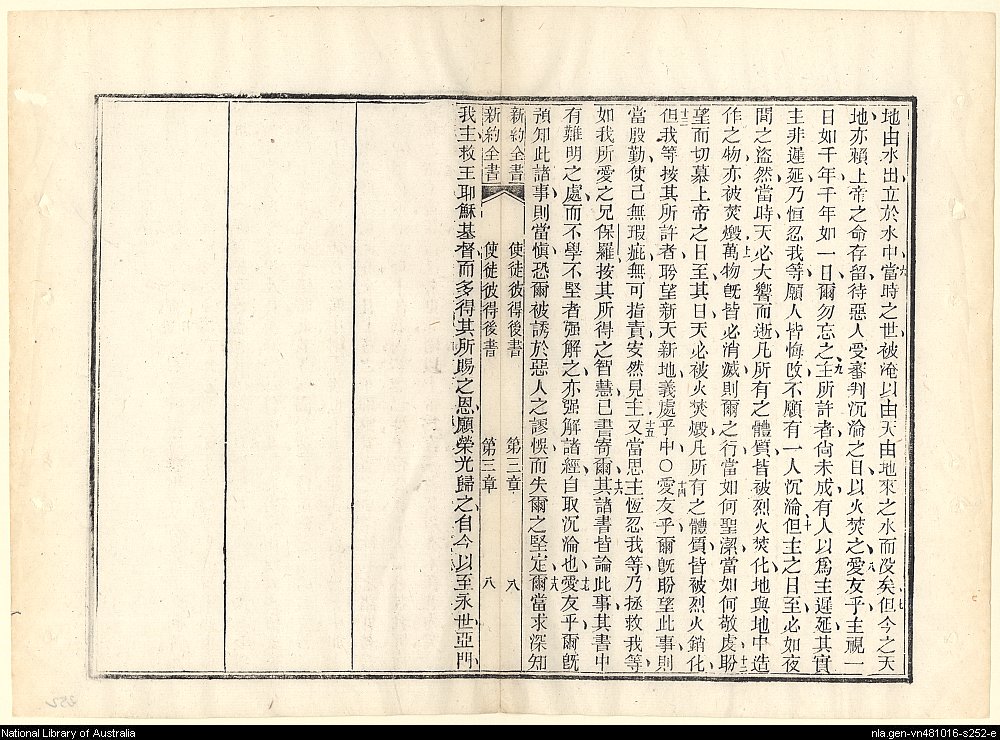 地由水出立於水中當時之世被淹以由天由地來之水而沒矣但今之天
地亦賴上帝之命存留待惡人受審判沉淪之日以火焚之愛友乎主視一
日如千年千年如一日爾勿忘之主所許者尙未成有人以爲主遲延其實
主非遲延乃恒忍我等願人皆悔改不願有一人沉淪但主之日至必如夜
間之盜然當時天必大響而逝凡所有之體質皆被烈火焚化地與地中造
作之物亦被焚燬萬物旣皆必消滅則爾之行當如何聖潔當如何敬虔盼
望而切慕上帝之日至其日天必被火焚燬凡所有之體質皆被烈火銷化
但我等按其所許者盼望新天新地義處乎中〇愛友乎爾旣盼望此事則
當殷勤使己無瑕疵無可指責安然見主又當思主恆忍我等乃拯救我等
如我所愛之兄保羅按其所得之智慧已書寄爾其諸書皆論此事其書中
有難明之處而不學不堅者强解之亦强解諸經自取沉淪也愛友乎爾旣
預知此諸事則當愼恐爾被誘於惡人之謬悞而失爾之堅定爾當求深知
新約全書 使徒彼得後書 第三章 八
新約全書 使徒彼得後書 第三章 八
我主救主耶穌基督而多得其所賜之恩願榮光歸之自今以至永世亞門
252
National Library of Australia
nla.gen-vn481016-s252-e